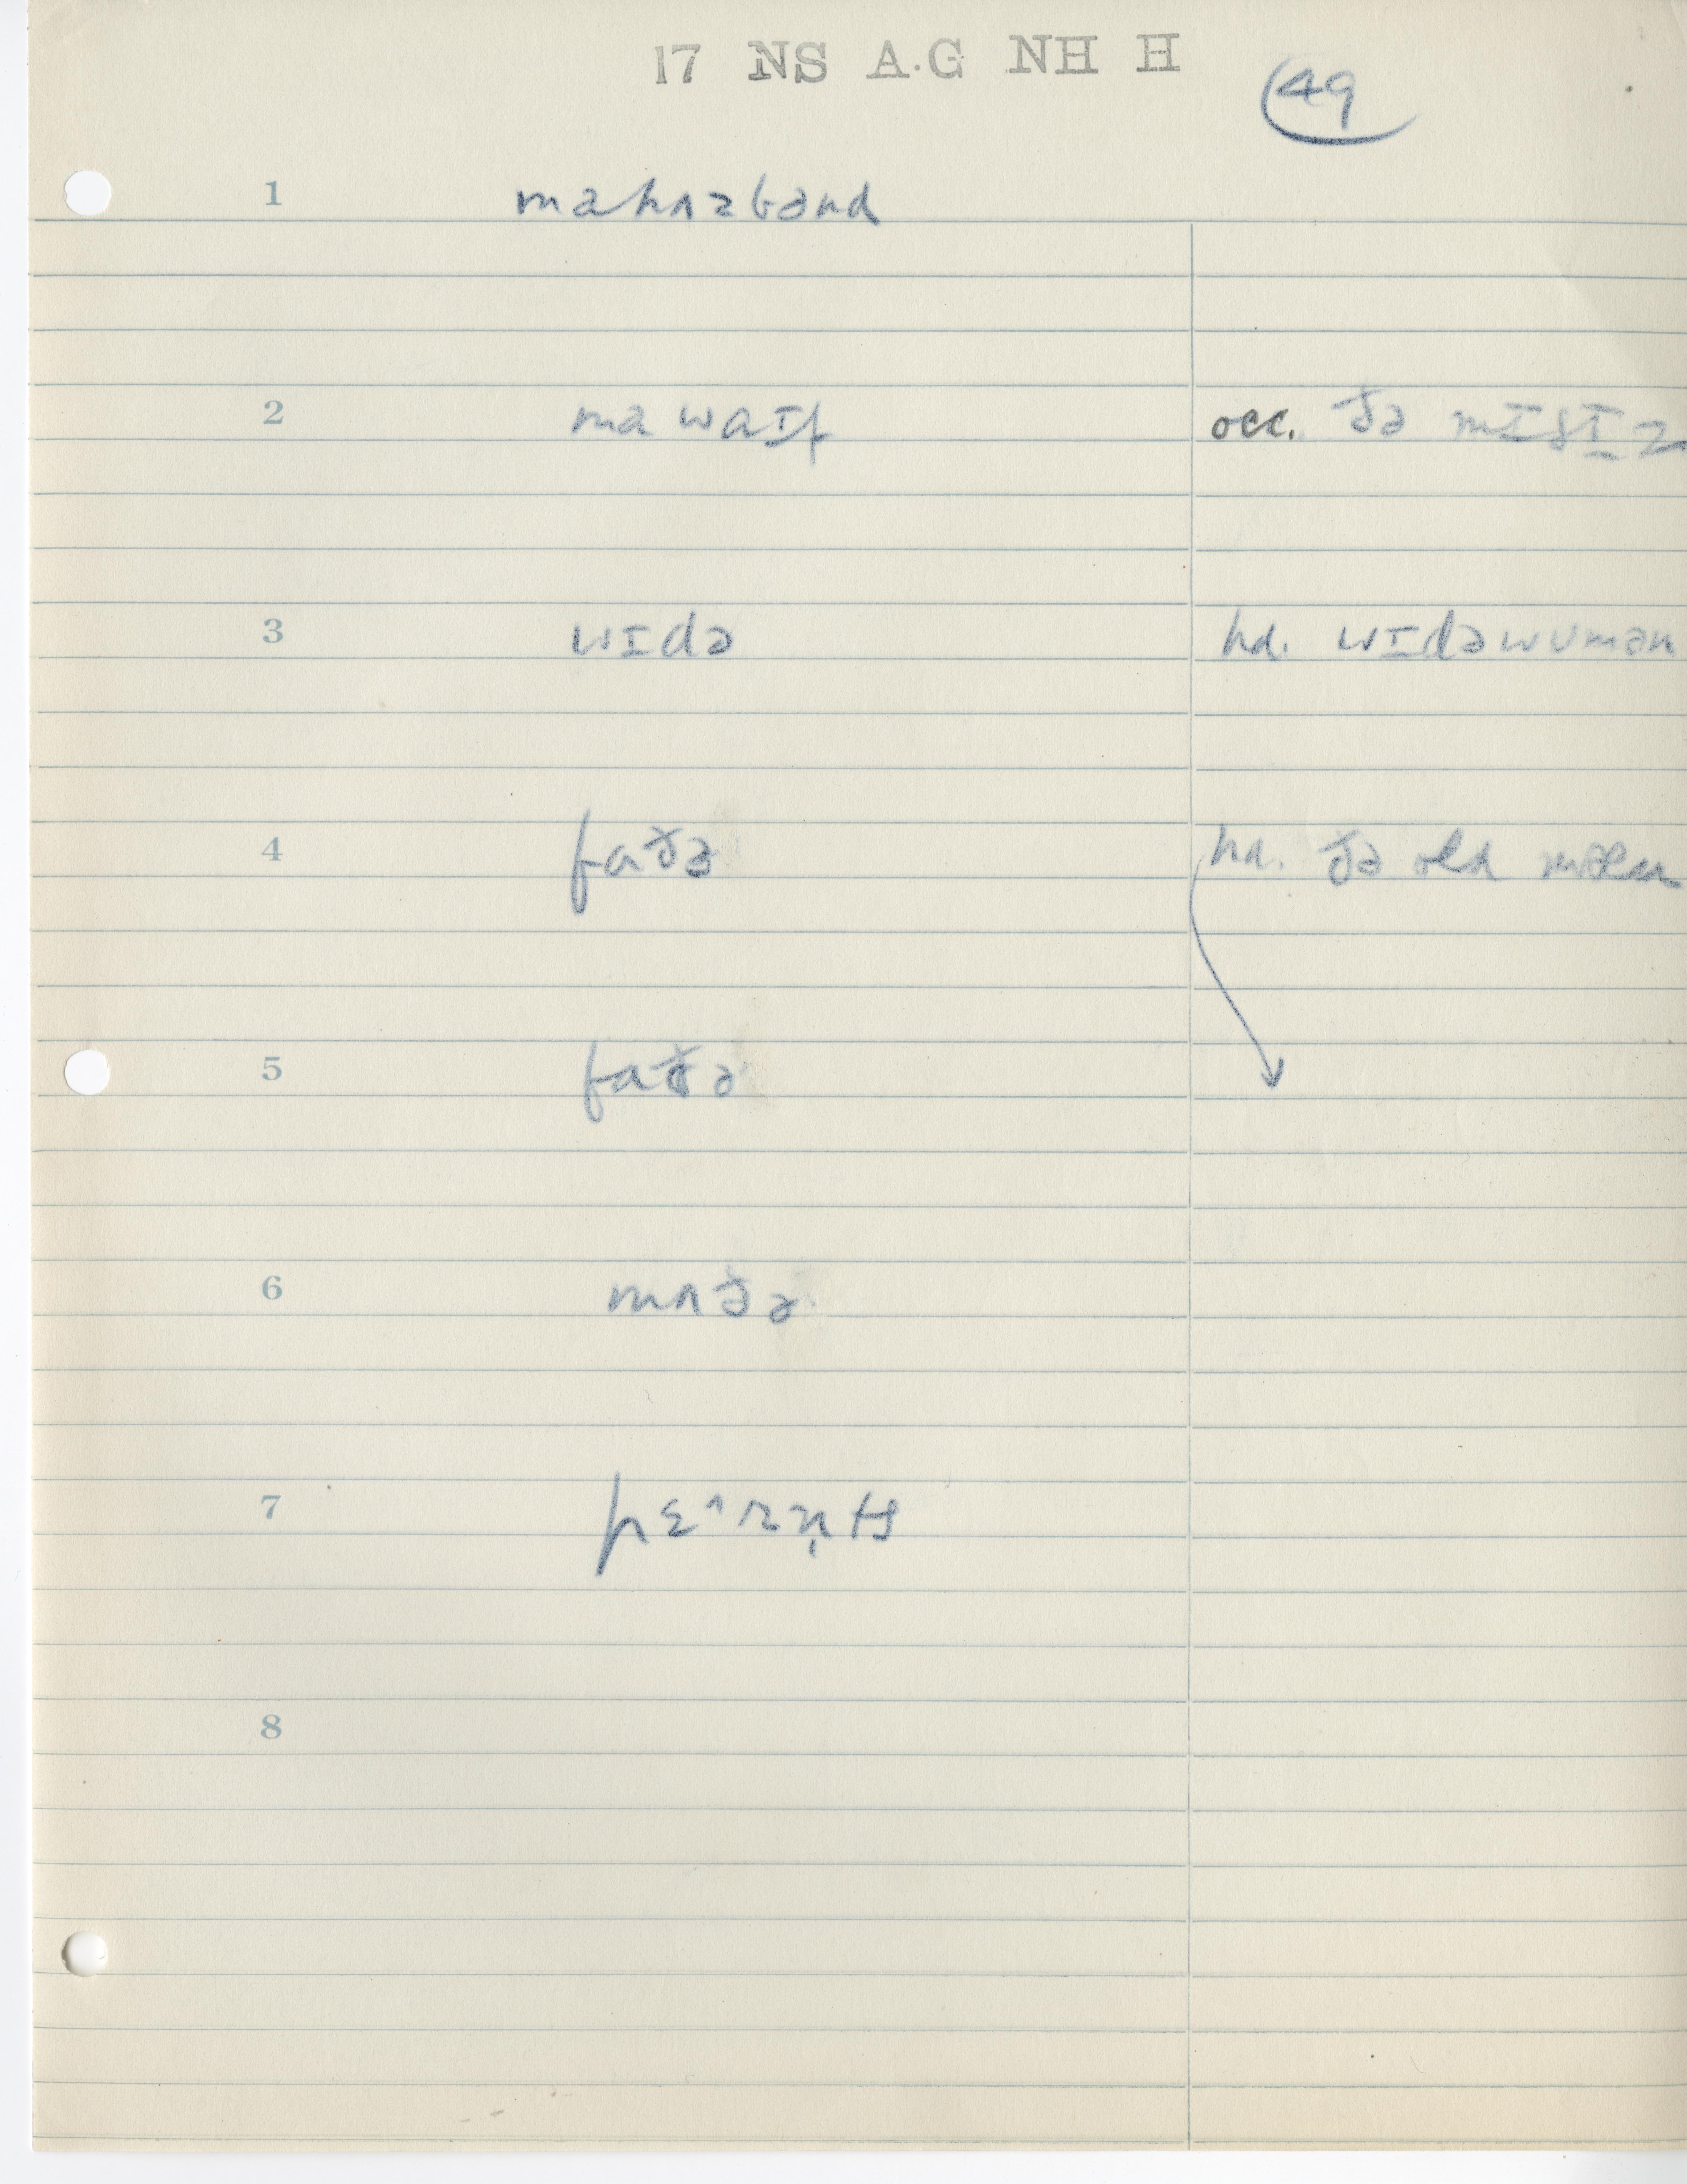 17 NS A.G NH H
49
1 mahʌzbənd
2 ma waɪf occ. ðə mɪsɪz
3 wɪdə hd. wɪdəwʊmən
4 faðə hd. ðə old
5 faðə
6 mʌðə
7 pɛ^rn̩ts
8